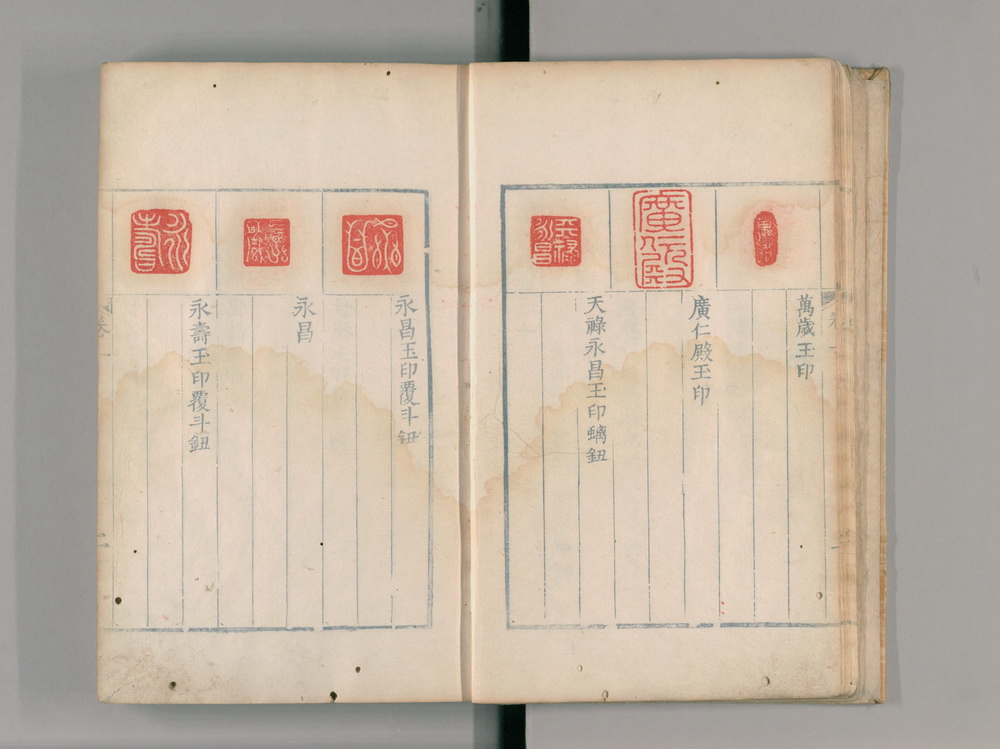 萬歲玉印
廣仁殿玉印
天祿永昌玉印螭鈕
永昌玉印覆斗鈕
永昌
永壽玉印覆斗鈕